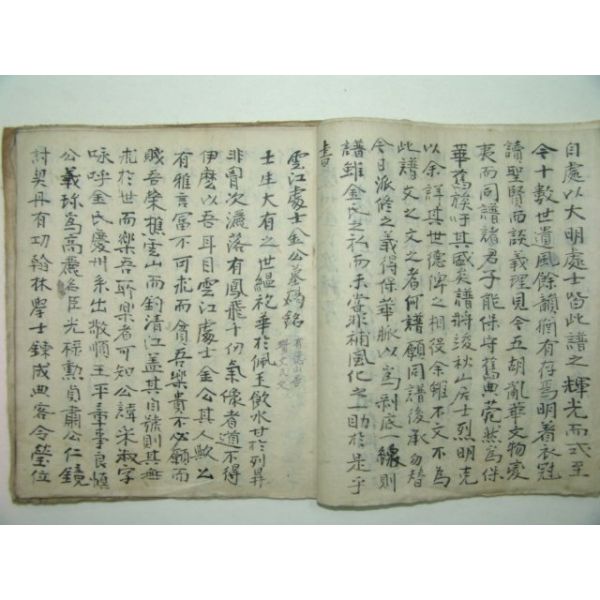 自處以大明處士皆此譜之輝光而式至
今十數世遺風餘韻猶有存焉明着衣冠
讀聖賢而談義理見今五胡亂華文物變
夷而同譜諸君子能保守舊典菀然爲保
華舊族吁其盛矣譜將浚秋山居士烈明克
以余詳其世德俾之相役余雖不文不爲
此譜文之文之者何譜顧同譜後承勿替
今日派修之義得保華脈以爲剝底一線則
譜雖金氏之私而未嘗非補風化之一助於是乎
書
雲江處士金公墓碣銘
士生大有之世縕袍華於佩玉飮水甘於列鼎
非胷次灑落有鳳飛千仞氣像者道不得
伊麽以吾耳目雲江處士金公其人歟公
有雅言富不可求而貪吾樂貴不必願而
賤吾榮樵雲山而釣淸江盖其自號則其無
求於世而樂吾所樂者可知公諱 字
咏呼金氏慶州系出敬順王平章事良愼
公義珎爲高麗名臣光祿勲貞肅公仁鏡
討契丹有功翰林學士鍊成典客令瑩位